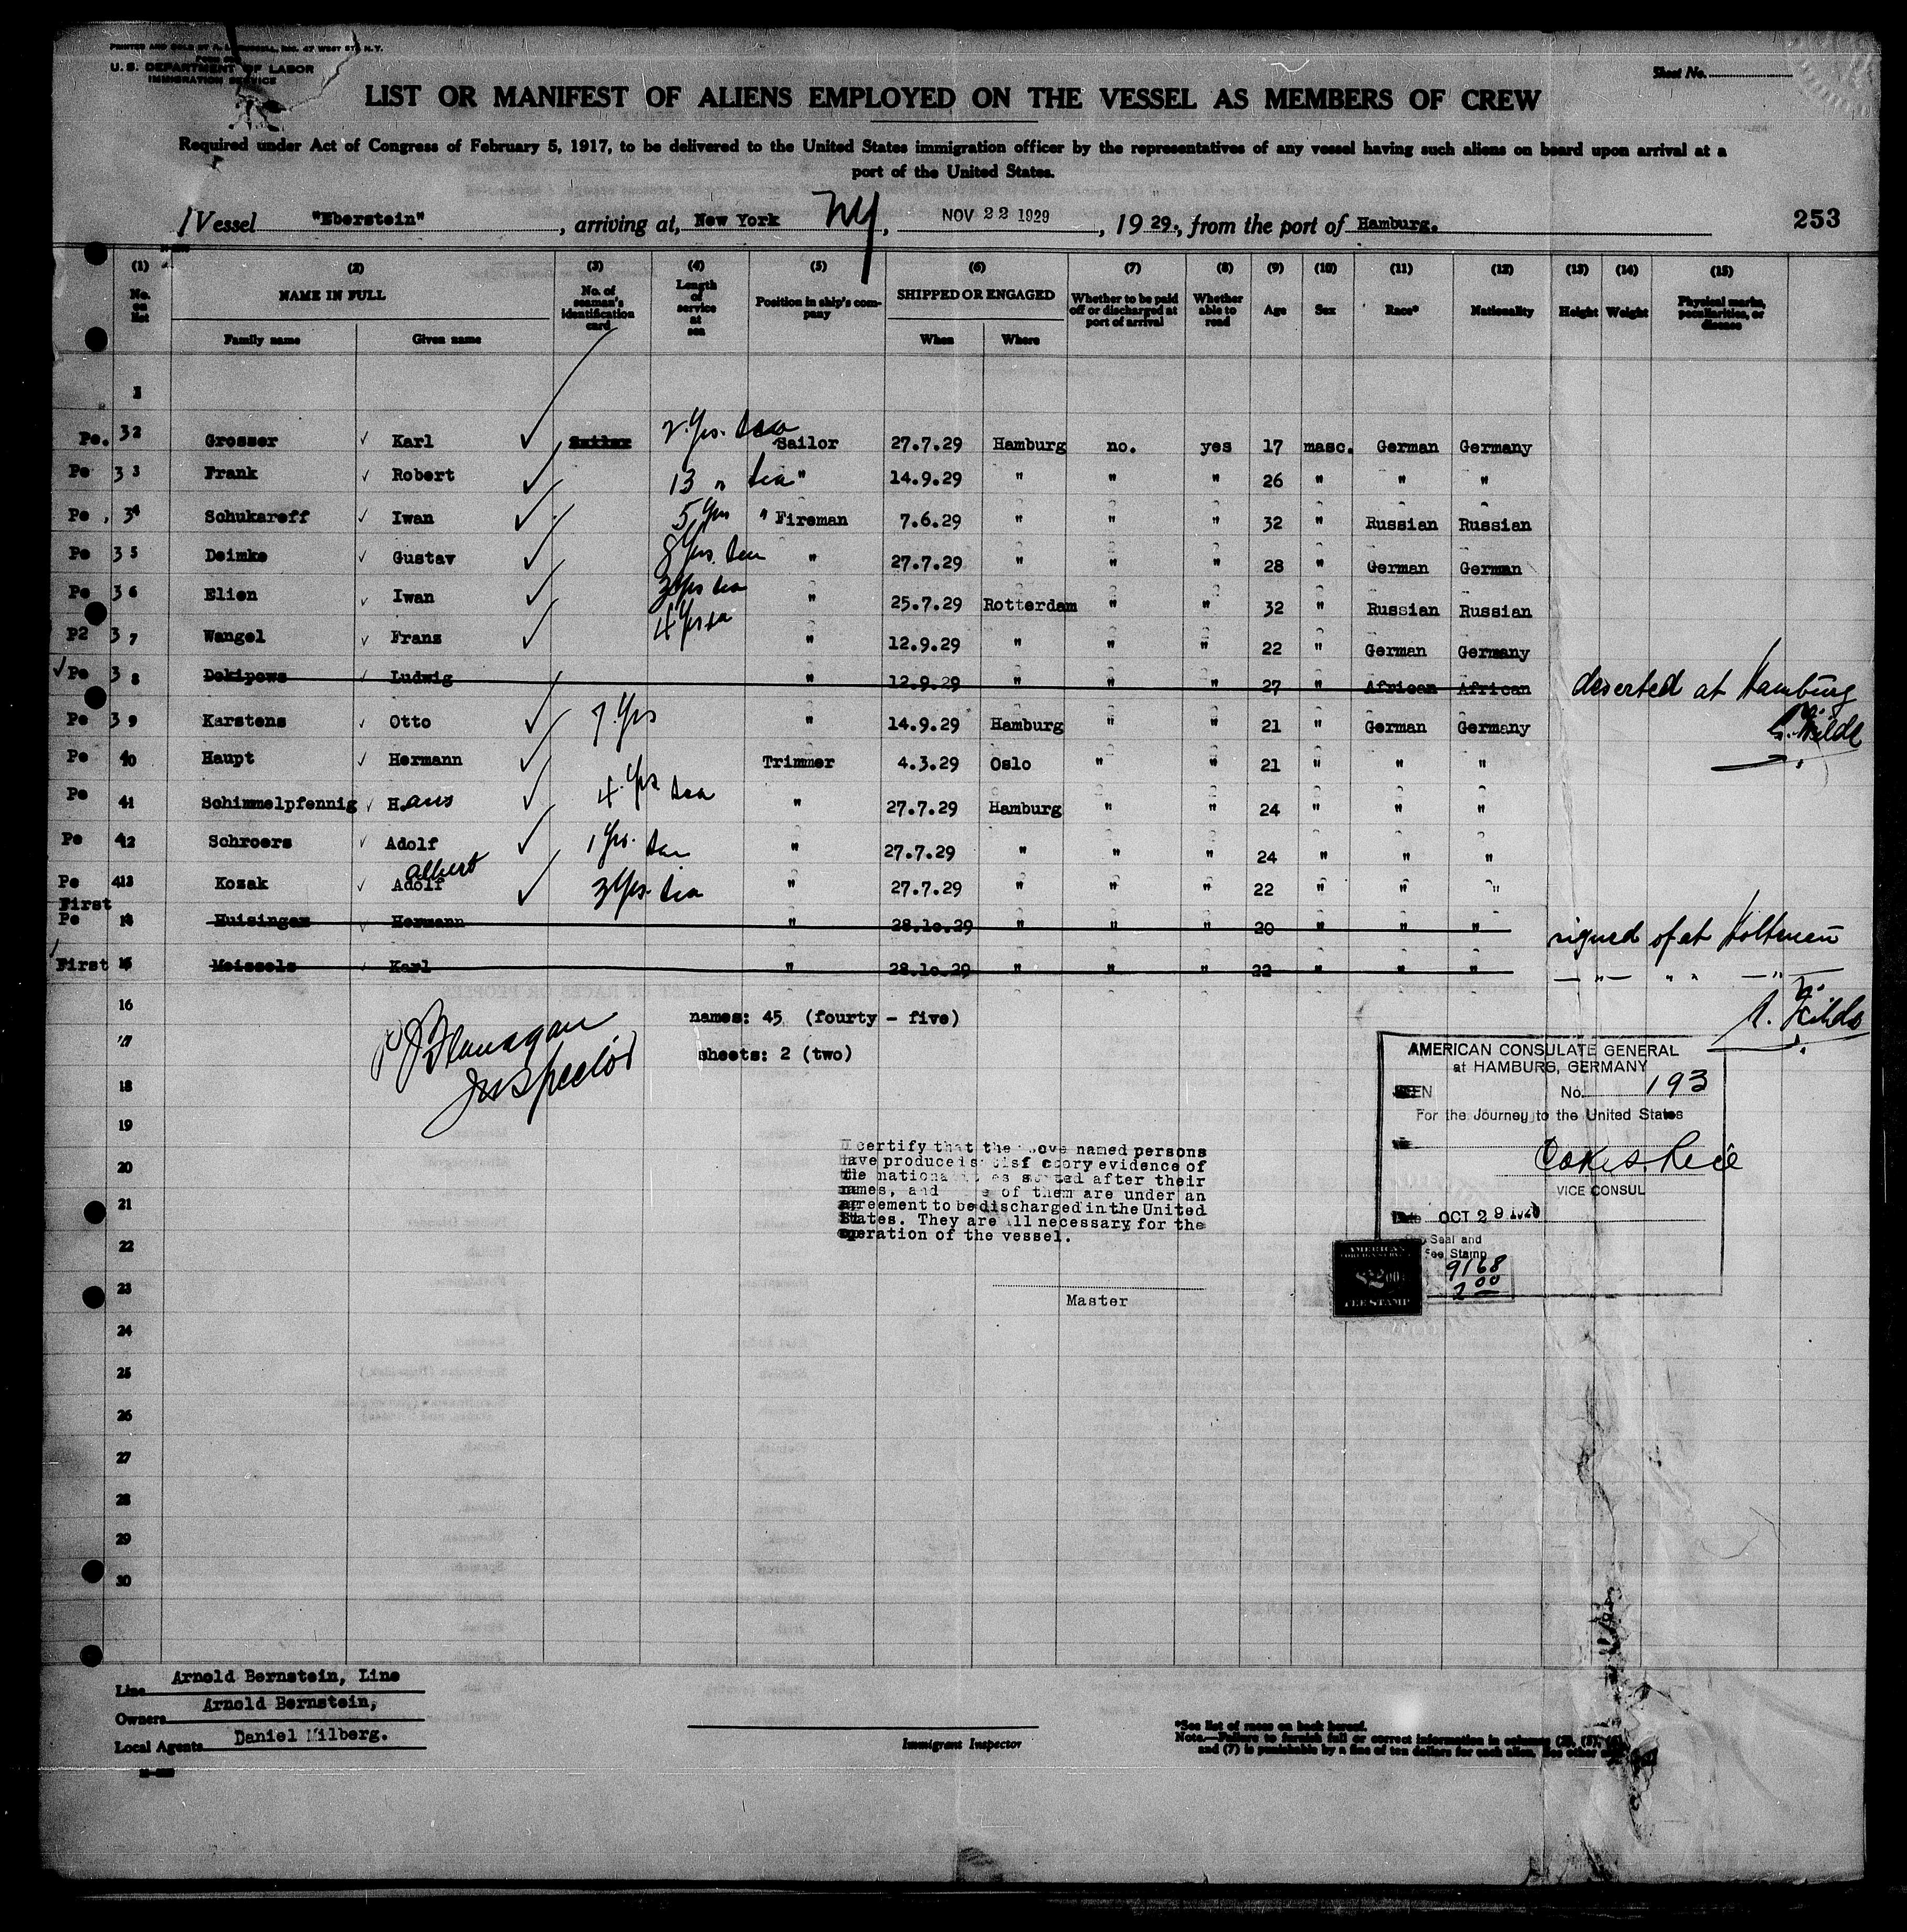 U. S. DEPARTMENT OF LABOR
IMMIGRATION SERVICE
Sheet No.
LIST OR MANIFEST OF ALIENS EMPLOYED ON THE VESSEL AS MEMBERS OF CREW
Required under Act of Congress of February 5, 1917, to be delivered to the United States immigration officer by the representatives of any vessel having such aliens on board upon arrival at a
port of the United States.
Vessel "Eberstein", arriving at, New York NY, NOV 22 1929, 1929., from the port of Hamburg. 253
(1) (2) (3) (4) (5) (6) (7) (8) (9) (10) (11) (12) (13) (14) (15)
No. on list NAME IN FULL No. of seaman's identification card Length of service at sea Position in ship's company SHIPPED OR ENGAGED Whether to be paid off or discharged at port of arrival Whether able to read Age Sex Race* Nationality Height Weight Physical marks, peculiarities, or disease
Family name Given name When Where
Pe. 32 Grosser Karl Sailor 2 Yrs. sea Sailor 27.7.29 Hamburg no. yes 17 masc. German Germany
Pe 33 Frank Robert 13 " sea " 14.9.29 " " " 26 " " "
Pe 34 Schukareff Iwan 5 Yrs " Fireman 7.6.29 " " " 32 " Russian Russian
Pe 35 Deimke Gustav 8 Yrs. sea " 27.7.29 " " " 28 " German German
Pe 36 Elien Iwan 3 Yrs sea " 25.7.29 Rotterdam " " 32 " Russian Russian
P2 37 Wangel Franz 4 Yrs " 12.9.29 " " " 22 " German Germany
Pe 38 Dokipowa Ludwig " 12.9.29 " " " 27 " African African deserted at Hamburg
Pe 39 Karstens Otto 7 Yrs " 14.9.29 Hamburg " " 21 " German Germany
Pe 40 Haupt Hermann Trimmer 4.3.29 Oslo " " 21 " " "
Pe 41 Schimmelpfennig Hans 4 Yrs sea " 27.7.29 Hamburg " " 24 " " "
Pe 42 Schroers Adolf 1 Yrs. sea " 27.7.29 " " " 24 " " "
Albert
Pe 43 Kozak Adolf 3 Yrs. sea " 27.7.29 " " " 22 " " "
First
Pe 14 Huisinger Hermann " 28.10.29 " " " 20 " " " signed of at
First 15 Meissels Karl " 28.10.29 " " " 22 " " " " " "
16 names: 45 (fourty - five)
P J Flanagan
17 sheets: 2 (two)
Inspector
18
19
20
21
22
23
24
25
26
27
28
29
30
AMERICAN CONSULATE GENERAL
at HAMBURG, GERMANY
SEEN No. 193
For the Journey to the United States
VICE CONSUL
Date OCT 29 1929
Seal and
Fee Stamp
9168
2 00
AMERICAN
FOREIGN SERVICE
$2.00
FEE STAMP
I certify that the above named persons
have produce satisfactory evidence of
the nationalities stated after their
names, and of them are under an
agreement to be discharged in the United
States. They are all necessary for the
operation of the vessel.
Master
Line Arnold Bernstein, Line
Owners Arnold Bernstein,
Local Agents Daniel Milberg.
Immigrant Inspector
*See list of races on back hereof.
Note.—Failure to furnish full or correct information in columns (2), (5), (6),
and (7) is punishable by a fine of ten dollars for each alien. See other